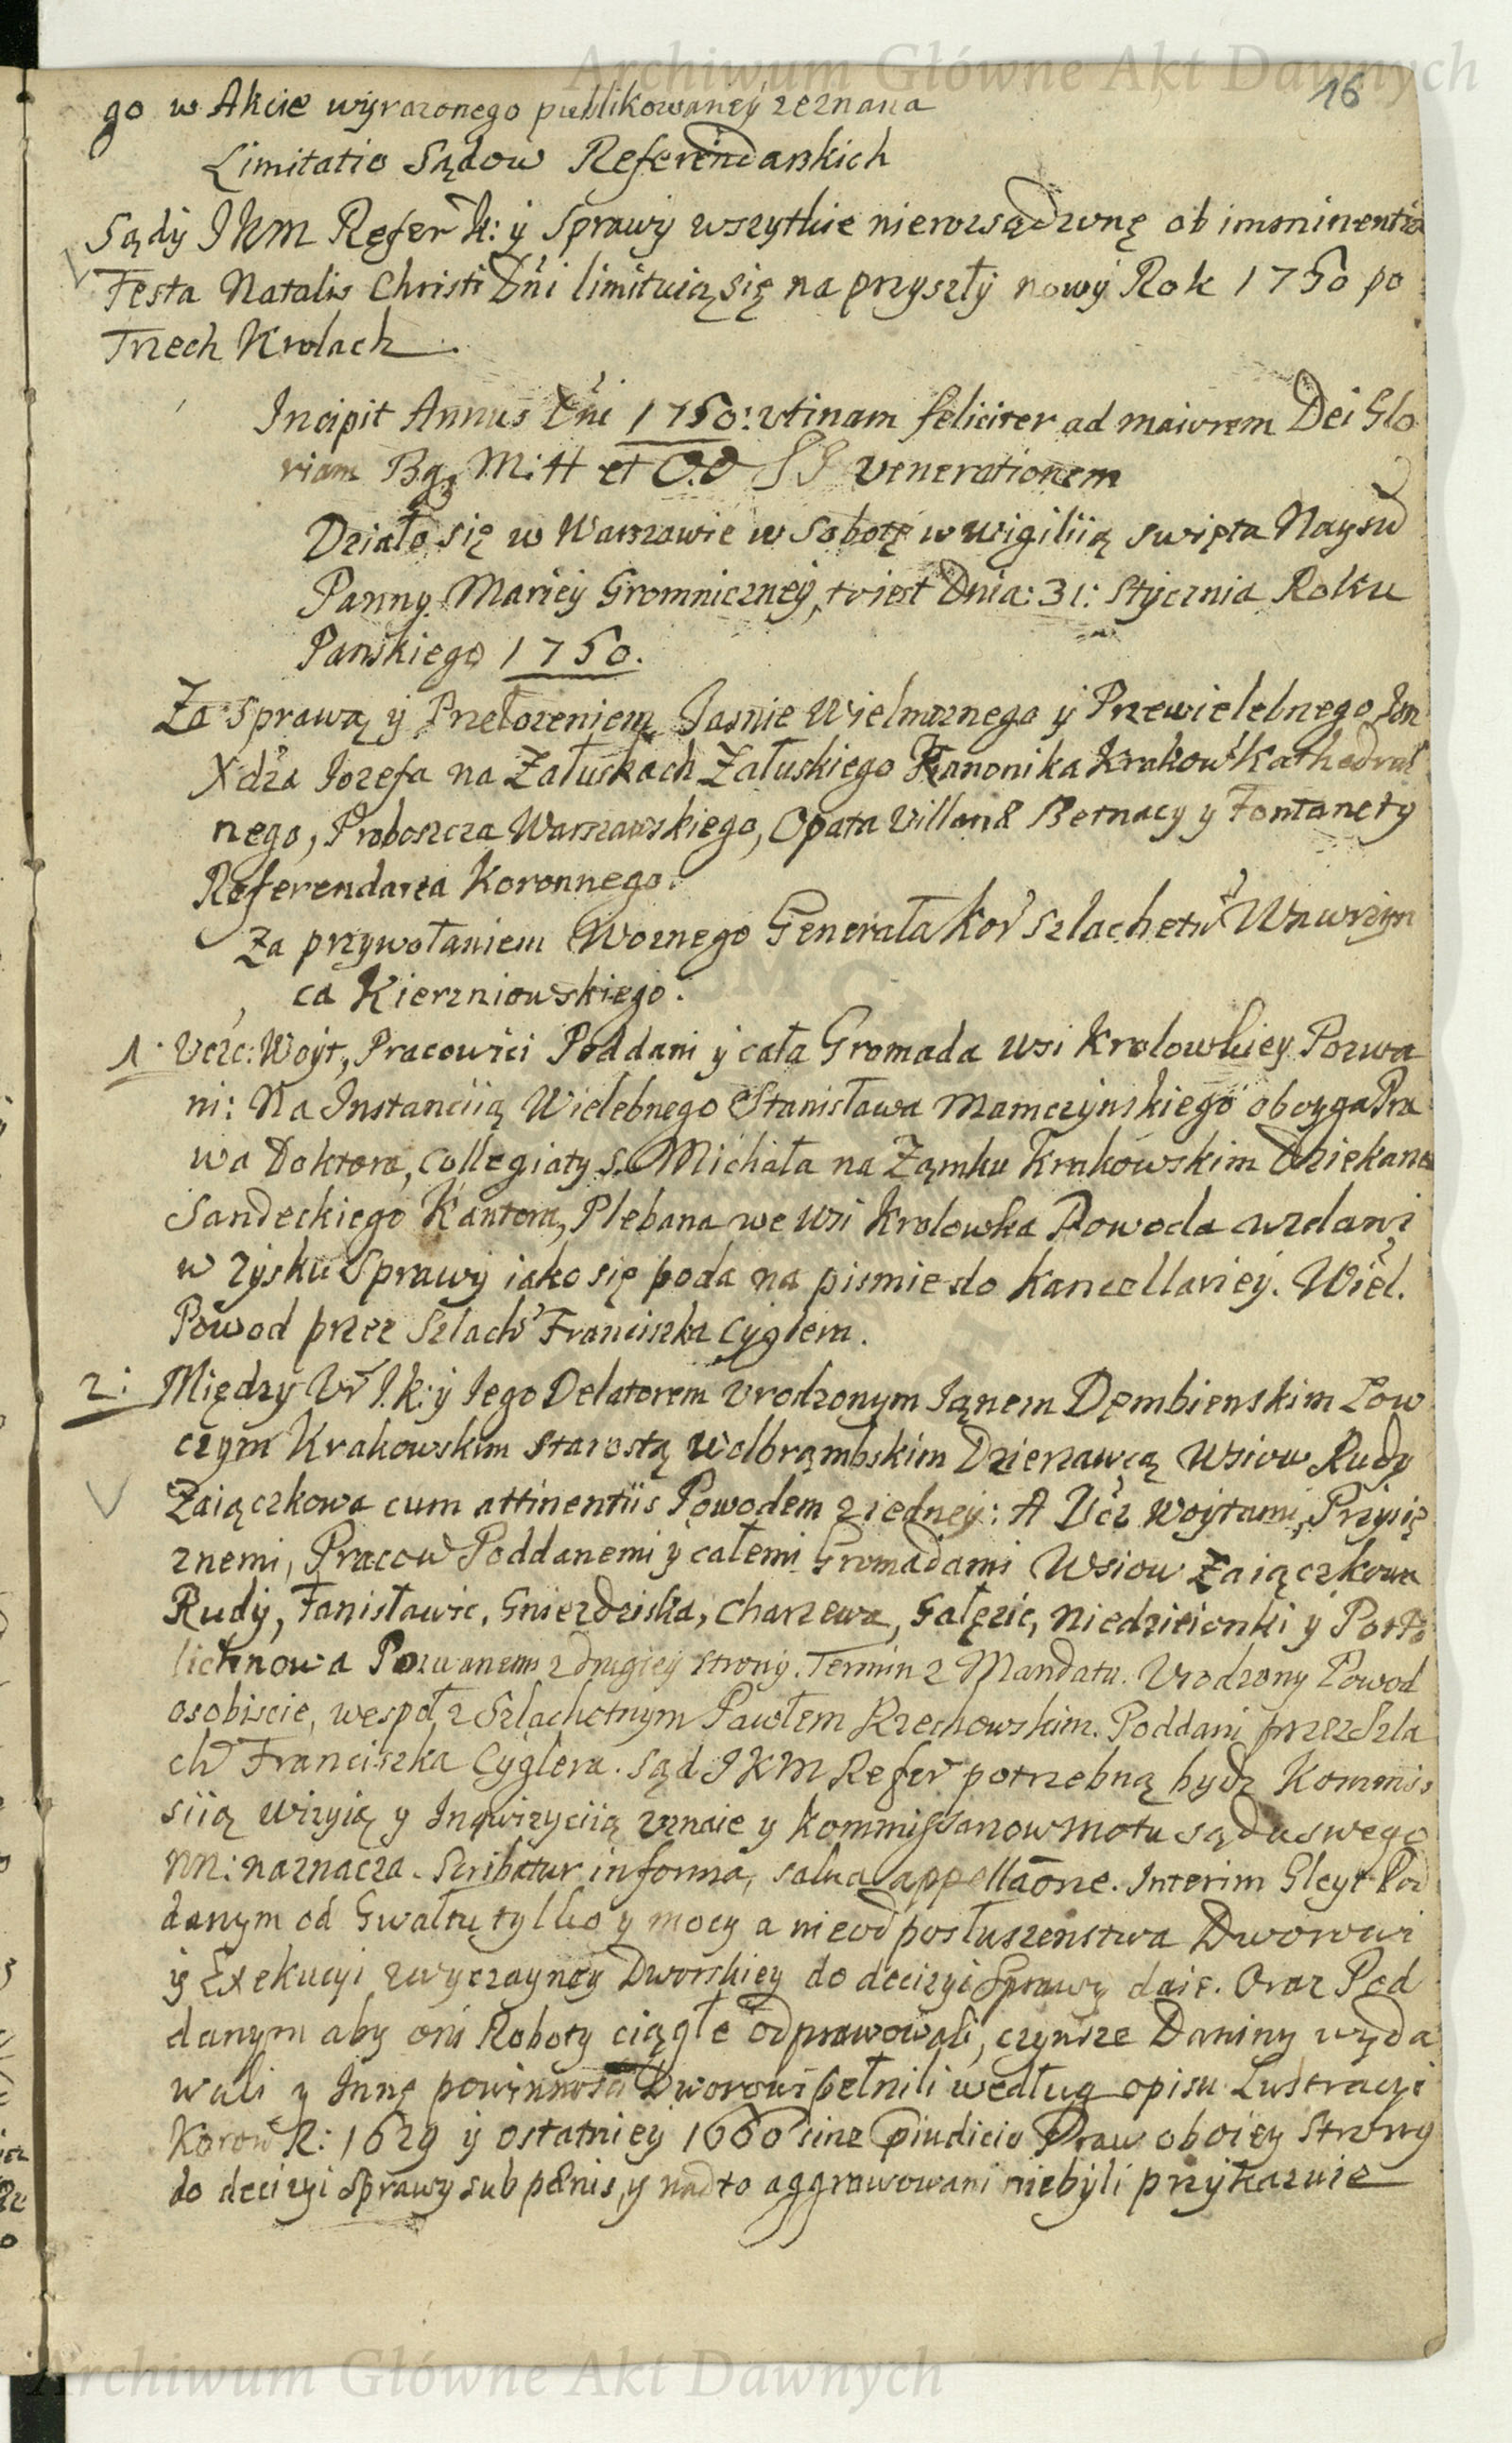 Archiwum Główne Akt Dawnych
16
go w Akcie wyrazonego publikowaney zeznana
Limitatio Sądow Referendarskich
Sądy JKM Refer K: y Sprawy wszytkie nierozsądzonę ob imminentia
Festa Natalis Christi Dni limituią się na przyszły nowy Rok 1750 po
Trzech Krolach.
Incipit Annus Dni 1750: utinam feliciter ad maiorem Dei Glo
riam Bg M: et O.O SS venerationem
Działo się w Warszawie w Sobotę w wigiliią swięta Naysw
Panny Mariey Gromniczney, to iest Dnia: 31: Stycznia Roku
Panskiego 1750.
Za Sprawą y Przełozeniem Jasnie Wielmoznego y Przewielebnego Jm
Xdza Jozefa na Załuskach Załuskiego Kanonika Krakow Kathedral
nego, Proboszcza Warszawskiego, Opata Villar& Bernacy y Fontanety
Referendarza Koronnego.
Za przywołaniem Woznego Generała Kor Szlachetn Wawrzyn
ca Kierzniowskiego.
1. Uczc: Woyt, Pracowici Poddani y cała Gromada wsi Krolowkiey Pozwa
ni: Na Instanciią Wielebnego Stanisława Mamczynskiego oboyga Pra
wa Doktora, Collegiaty S. Michała na Zamku Krakowskim Dziekana
Sandeckiego Kantora, Plebana we wsi Krolowka Powoda wzdani
w zysku Sprawy iako się poda na pismie do Kancellariey. Wiel.
Powod przez Szlach Franciszka Cyglera.
2: Między Ur J.k: y Jego Delatorem Urodzonym Janem Dęmbienskim Low
czym Krakowskim Starostą Wolbrąmbskim Dzierzawcą Wsiow Rudy
Zaiączkowa cum attinentiis Powodem z iedney: A Ucz Woytami, Przysię
znemi, Pracow Poddanemi y całemi Gromadami Wsiow Zaiączkowa
Rudy, Fanisławic, Gniezdziska, Charzewa, Gałęzic, Niedzicionki y Porto
lichnowa Pozwanemi z drugiey strony. Termin z Mandatu. Urodzony Powod
osobiscie, wespoł z Szlachetnym Pawłem Rzechowskim. Poddani przez Szla
ch Franciszka Cyglera. Sąd JKM Refer potrzebną bydz Kommis
siią wizyią y Inqwizyciią uznaie y Kommissarzow motu sądu swego
NN: naznacza. Scribatur in forma, salva appellaone. Interim Gleyt Pod
danym od Gwałtu tylko y mocy a nieod posłuszenstwa Dworowi
y Exekucyi zwyczayney Dworskiey do decizyi Sprawy daie. Oraz Pod
danym aby oni Roboty ciągłe odprawowali, czynsze Daniny wyda
wali y Innę powinnosci Dworowi pełnili według opisu Lustracyi
Korow R: 1629 y ostatniey 1660 sine piudicio Praw oboiey Strony
do decizyi Sprawy sub penis, y nadto aggrawowani niebyli przykazuie
Archiwum Główne Akt Dawnych